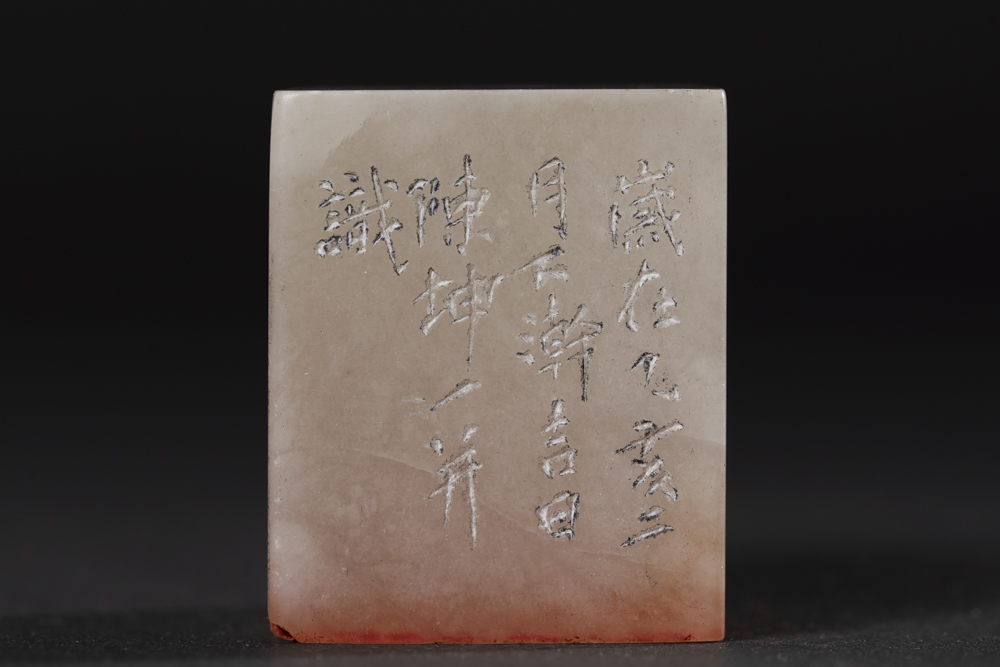 歲在乙亥二
月下澣吉日
陳坤一并
識